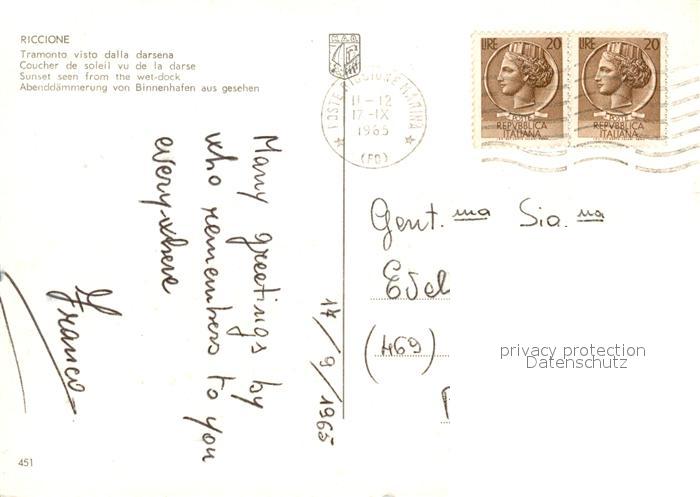 RICCIONE
Tramonto visto dalla darsena
Coucher de soleil vu de la darse
Sunset seen from the wet-dock
Abenddämmerung von Binnenhafen aus gesehen
POSTE RICCIONE MARINA
11-12
17-IX
1965
(FO)
LIRE 20
POSTE
REPVBBLICA
ITALIANA
LIRE 20
POSTE
REPVBBLICA
ITALIANA
Many greetings by
who remembers to you
every-where
Franco
17/9/1965
Gent.ma Sig.na
(469)
privacy protection
Datenschutz
451